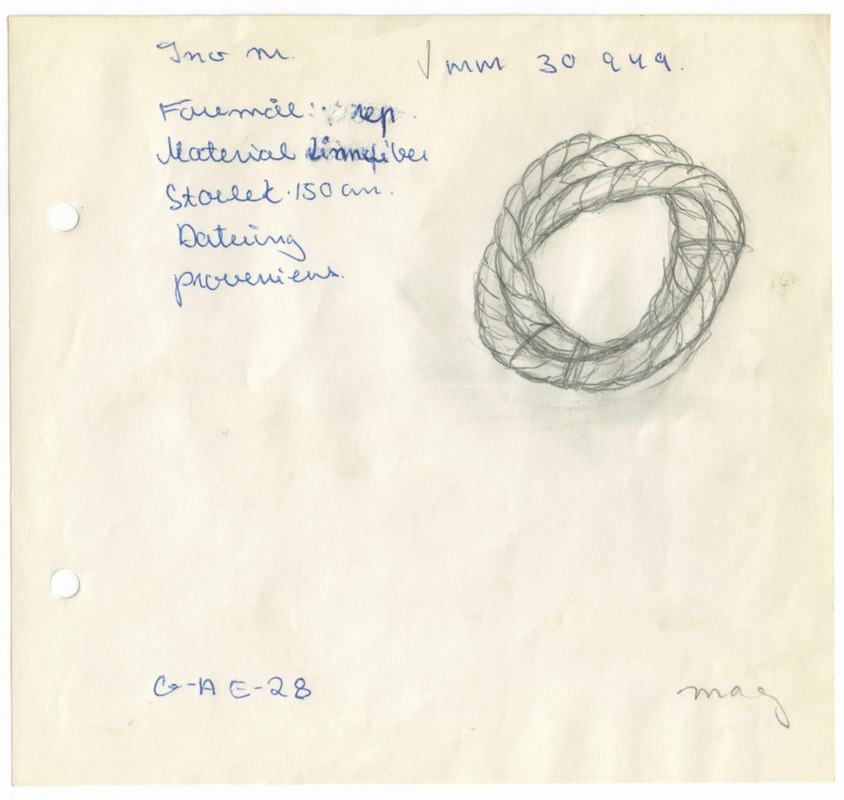 Inv nr. √ mm 30 949.
Föremål: rep.
Material linnefiber
Storlek. 150 cm.
Datering
proveniens.
G-A E-28
mag